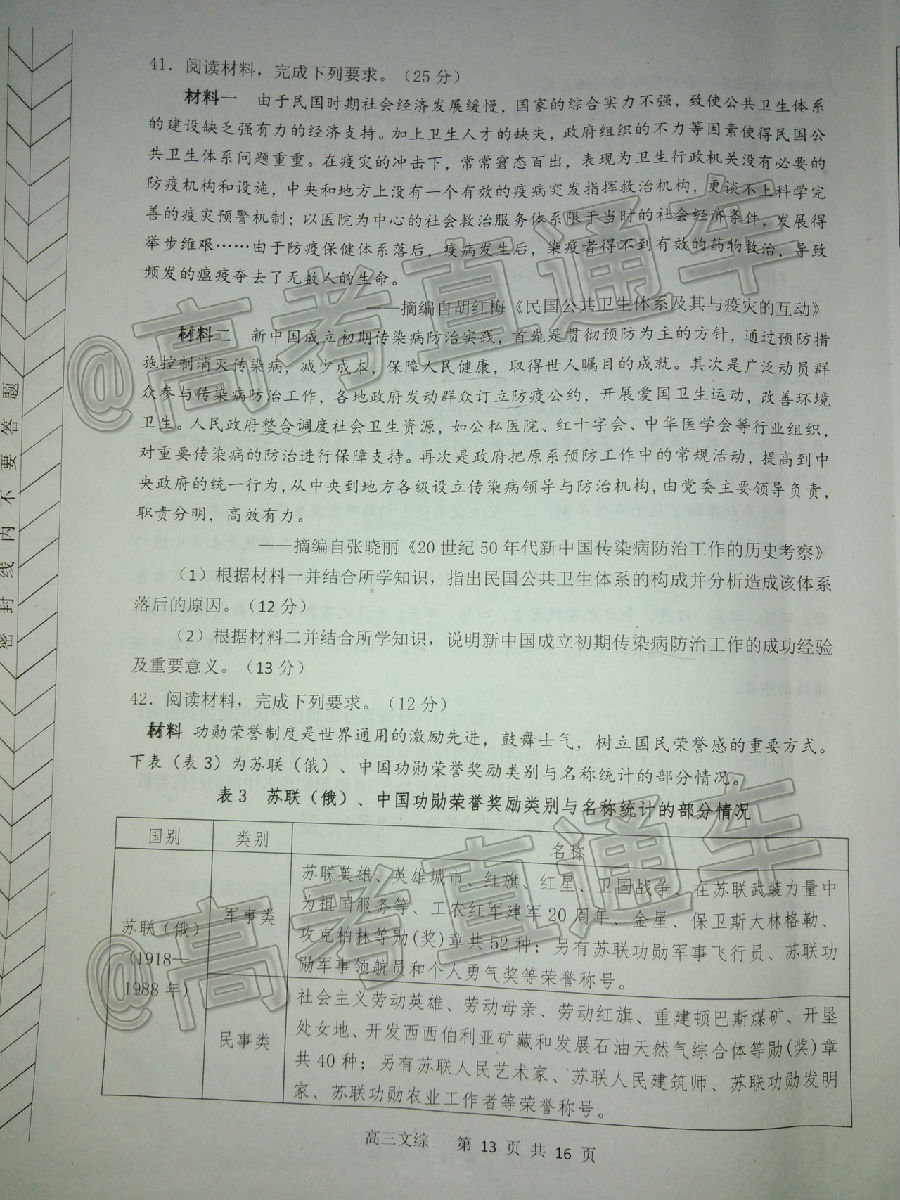 41．阅读材料，完成下列要求。（25 分）
材料一　由于民国时期社会经济发展缓慢，国家的综合实力不强，致使公共卫生体系
的建设缺乏强有力的经济支持。加上卫生人才的缺失，政府组织的不力等因素使得民国公
共卫生体系问题重重。在疫灾的冲击下，常常窘态百出，表现为卫生行政机关没有必要的
防疫机构和设施，中央和地方上没有一个有效的疫病突发指挥救治机构，更谈不上科学完
善的疫灾预警机制；以医院为中心的社会救治服务体系限于当时的社会经济条件，发展得
举步维艰……由于防疫保健体系落后，疫病发生后，染疫者得不到有效的药物救治，导致
频发的瘟疫夺去了无数人的生命。
——摘编自胡红梅《民国公共卫生体系及其与疫灾的互动》
材料二　新中国成立初期传染病防治实践，首先是贯彻预防为主的方针，通过预防措
施控制消灭传染病，减少成本，保障人民健康，取得世人瞩目的成就。其次是广泛动员群
众参与传染病防治工作，各地政府发动群众订立防疫公约，开展爱国卫生运动，改善环境
卫生。人民政府整合调度社会卫生资源，如公私医院、红十字会、中华医学会等行业组织，
对重要传染病的防治进行保障支持。再次是政府把原系预防工作中的常规活动，提高到中
央政府的统一行为，从中央到地方各级设立传染病领导与防治机构，由党委主要领导负责，
职责分明，高效有力。
——摘编自张晓丽《20 世纪 50 年代新中国传染病防治工作的历史考察》
（1）根据材料一并结合所学知识，指出民国公共卫生体系的构成并分析造成该体系
落后的原因。（12 分）
（2）根据材料二并结合所学知识，说明新中国成立初期传染病防治工作的成功经验
及重要意义。（13 分）
42．阅读材料，完成下列要求。（12 分）
材料 功勋荣誉制度是世界通用的激励先进，鼓舞士气，树立国民荣誉感的重要方式。
下表（表 3）为苏联（俄）、中国功勋荣誉奖励类别与名称统计的部分情况。
表 3　苏联（俄）、中国功勋荣誉奖励类别与名称统计的部分情况
国别　类别　名称
苏联（俄）
(1918—
1988 年)
军事类
苏联英雄、英雄城市、红旗、红星、卫国战争、在苏联武装力量中
为祖国服务等、工农红军建军 20 周年、金星、保卫斯大林格勒、
攻克柏林等勋(奖)章共 52 种；另有苏联功勋军事飞行员、苏联功
勋军事领航员和个人勇气奖等荣誉称号。
民事类
社会主义劳动英雄、劳动母亲、劳动红旗、重建顿巴斯煤矿、开垦
处女地、开发西西伯利亚矿藏和发展石油天然气综合体等勋(奖)章
共 40 种；另有苏联人民艺术家、苏联人民建筑师、苏联功勋发明
家、苏联功勋农业工作者等荣誉称号。
高三文综　第 13 页 共 16 页
密封线内不要答题
@高考直通车
@高考直通车